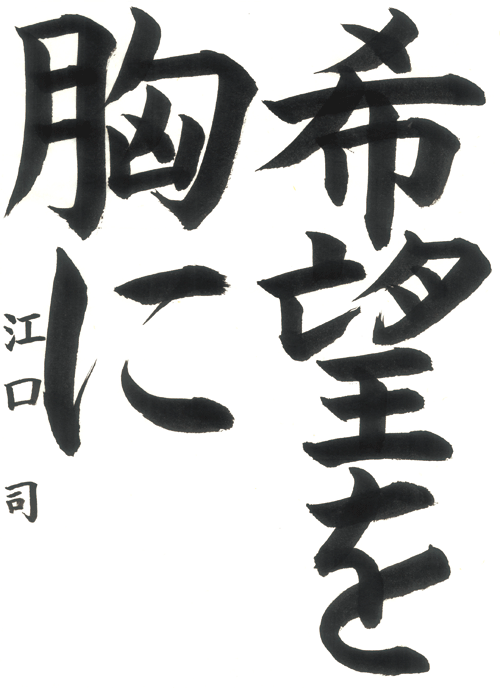 希望を
胸に
江口 司